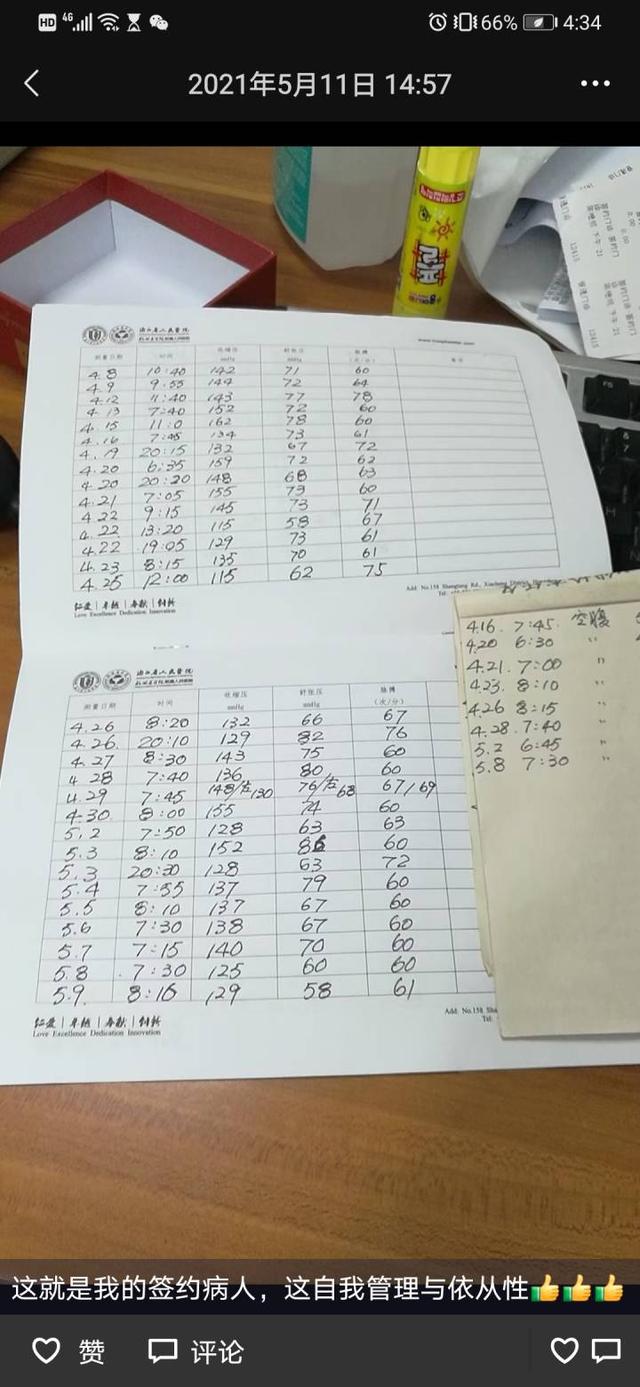 HD 4G 66% 4:34
2021年5月11日 14:57
浙江省人民医院
测量日期 时间 收缩压 舒张压 脉搏
mmHg mmHg (次/分)
4.8 10:40 142 71 60
4.9 9:55 144 72 64
4.12 11:40 143 77 78
4.13 7:40 152 72 60
4.15 11:0 162 78 60
4.16 7:45 134 73 61
4.19 20:15 132 67 72
4.20 6:35 159 72 62
4.20 20:20 148 68 63
4.21 7:05 155 73 60
4.22 9:15 145 73 71
4.22 13:20 115 58 67
4.22 19:05 129 73 61
4.23 8:15 135 70 61
4.25 12:00 115 62 75
Add: No.158 Shangtang Rd.,
仁爱 | 卓越 | 奉献 | 创新
Love Excellence Dedication Innovation
浙江省人民医院
测量日期 时间 收缩压 舒张压 脉搏
mmHg mmHg (次/分)
4.26 8:20 132 66 67
4.26 20:10 129 82 76
4.27 8:30 143 75 60
4.28 7:40 136 80 60
4.29 7:45 148/左130 76/左68 67/69
4.30 8:00 155 74 60
5.2 7:50 128 63 63
5.3 8:10 152 86 60
5.3 20:30 128 63 72
5.4 7:55 137 79 60
5.5 8:10 137 67 60
5.6 7:30 138 67 60
5.7 7:15 140 70 60
5.8 7:30 125 60 60
5.9 8:10 129 58 61
Add: No.158
Tel:
仁爱 | 卓越 | 奉献 | 创新
Love Excellence Dedication Innovation
4.16. 7:45. 空腹
4.20 6:30 "
4.21. 7:00 "
4.23. 8:10 "
4.26 8:15 "
4.28. 7:40 "
5.2 6:45 "
5.8 7:30 "
这就是我的签约病人，这自我管理与依从性👍👍👍
赞 评论